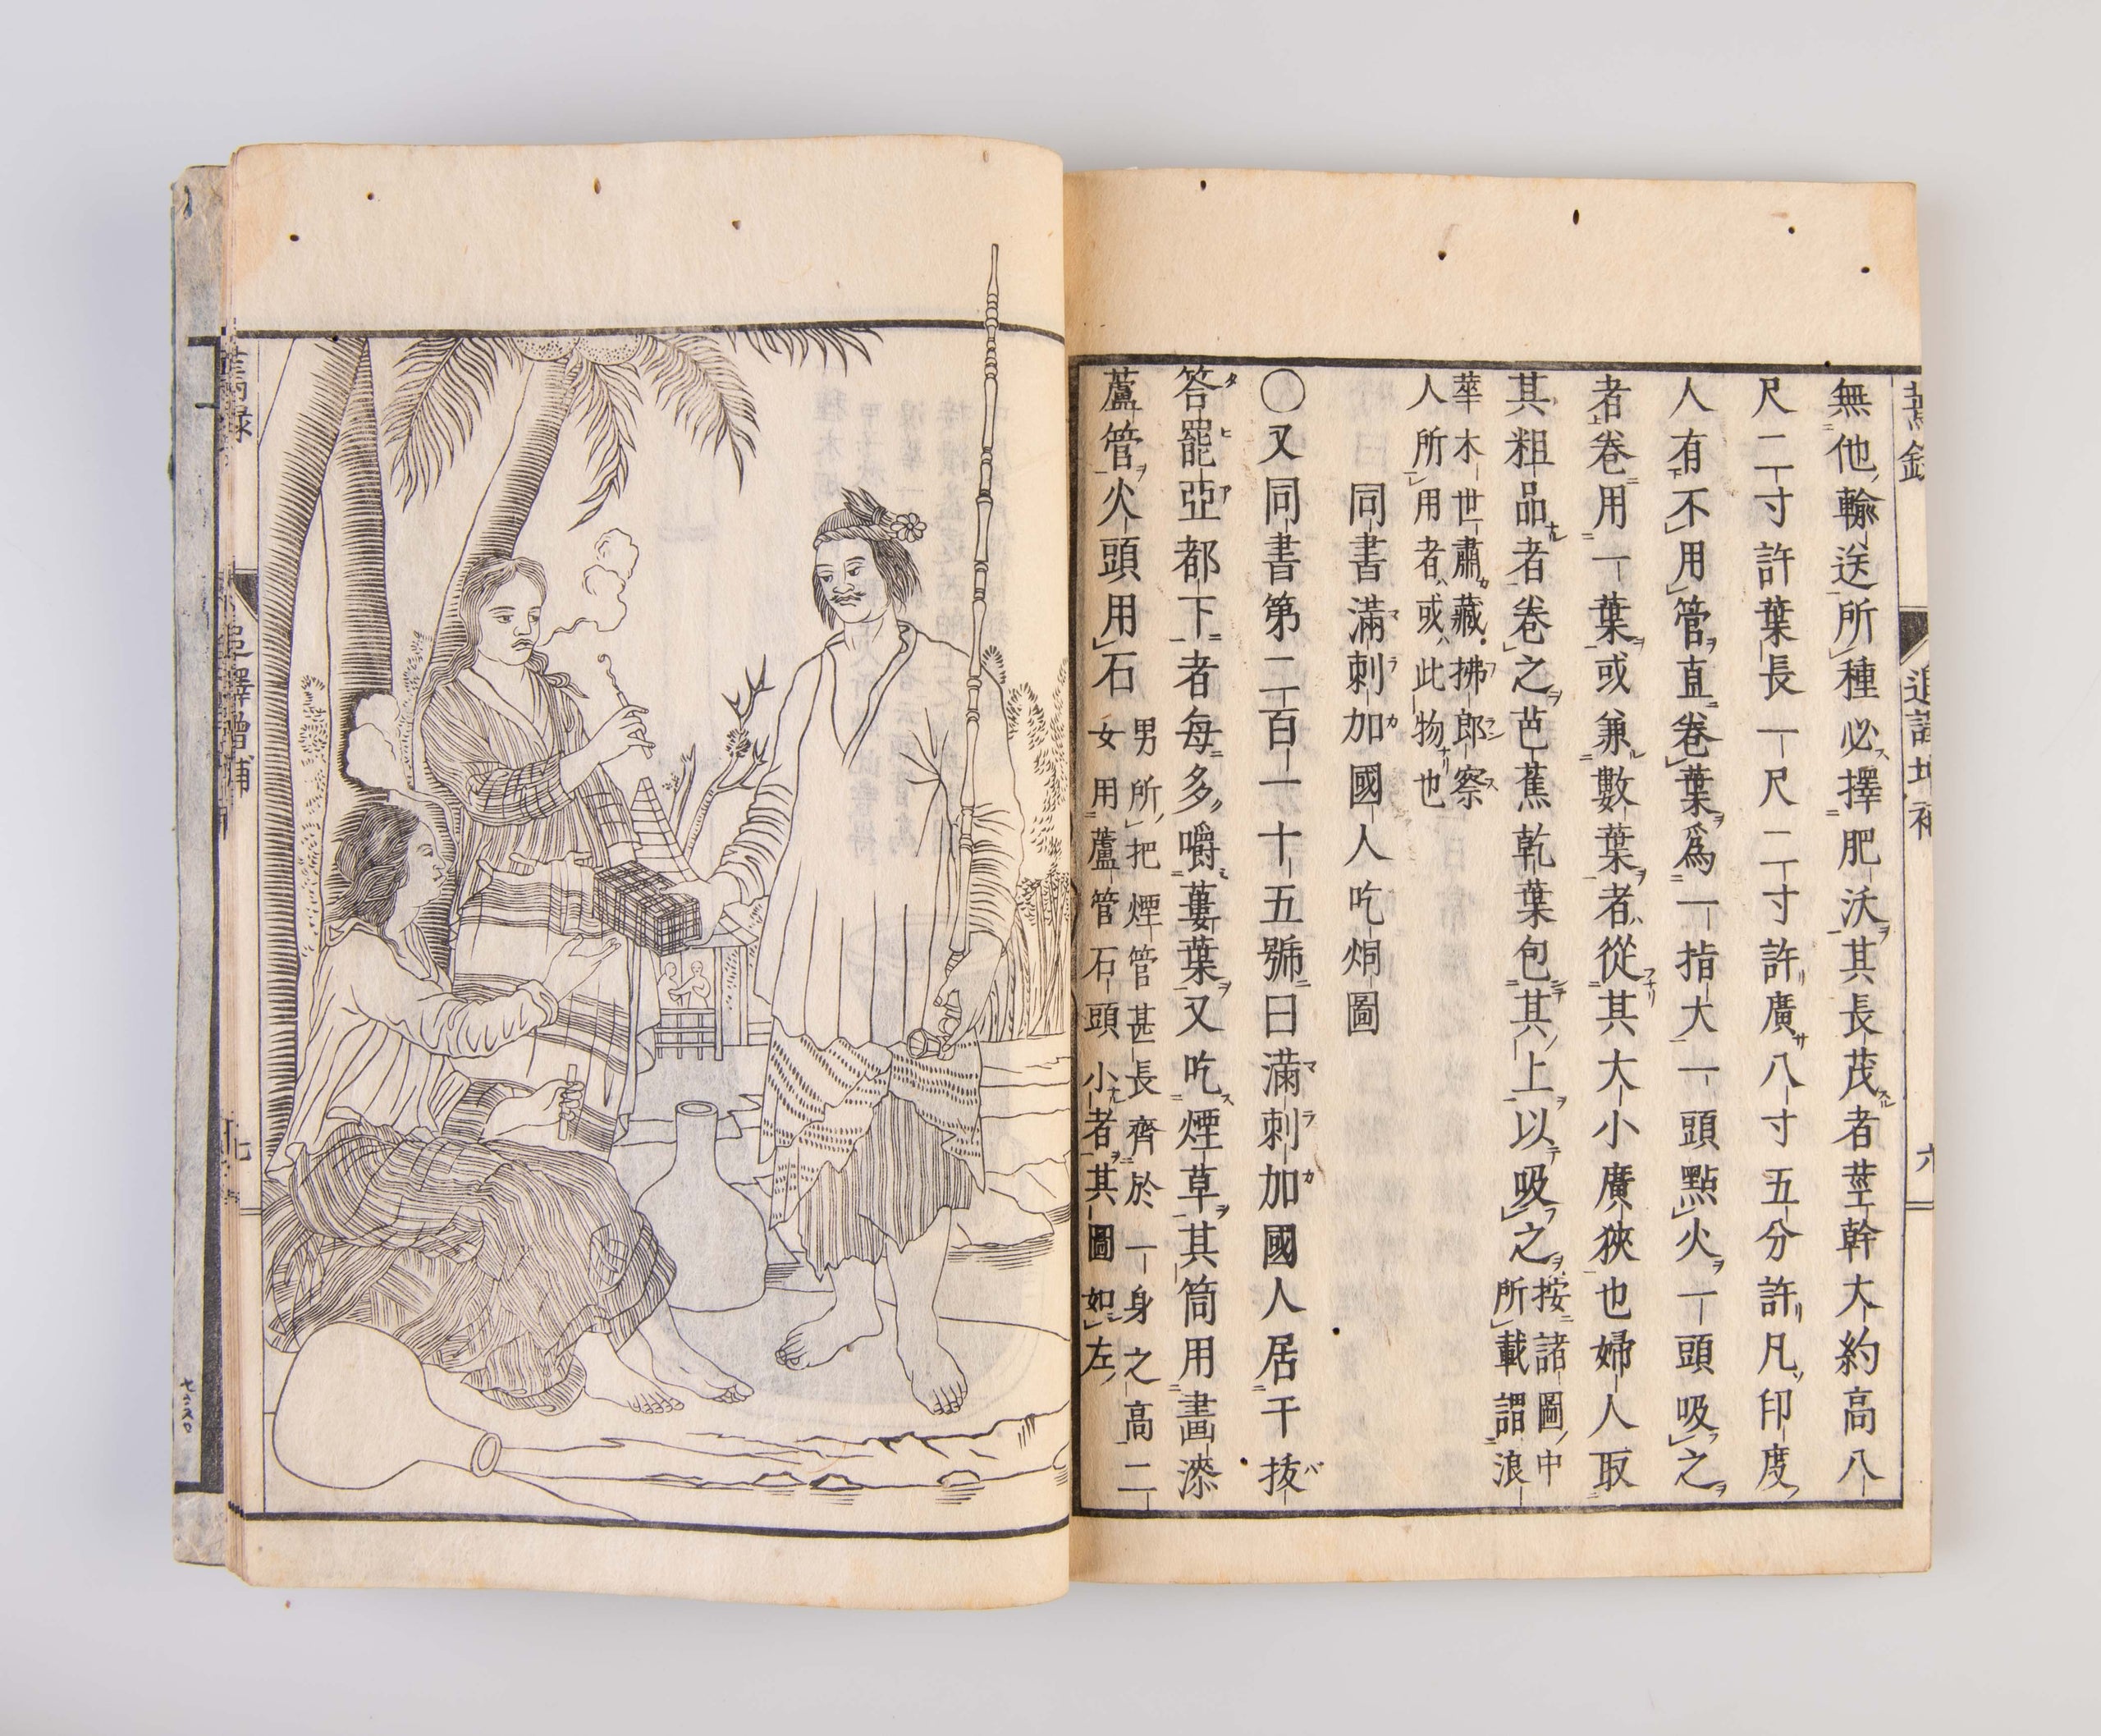 無他輸送所種必擇肥沃其長茂者莖幹大約高八
尺二寸許葉長一尺二寸許廣八寸五分許凡印度
人有不用管直卷葉爲一指大一頭點火一頭吸之
者卷用一葉或兼數葉者從其大小廣狹也婦人取
其粗品者卷之芭蕉乾葉包其上以吸之按諸圖中
所載謂浪
華木世肅藏拂郎察
人所用者或此物也
同書滿刺加國人吃烟圖
〇又同書第二百一十五號曰滿刺加國人居干拔
答罷亞都下者每多嚼蔞葉又吃煙草其筒用畫漆
蘆管火頭用石男所把煙管甚長齊於一身之高二
女用蘆管石頭小者其圖如左